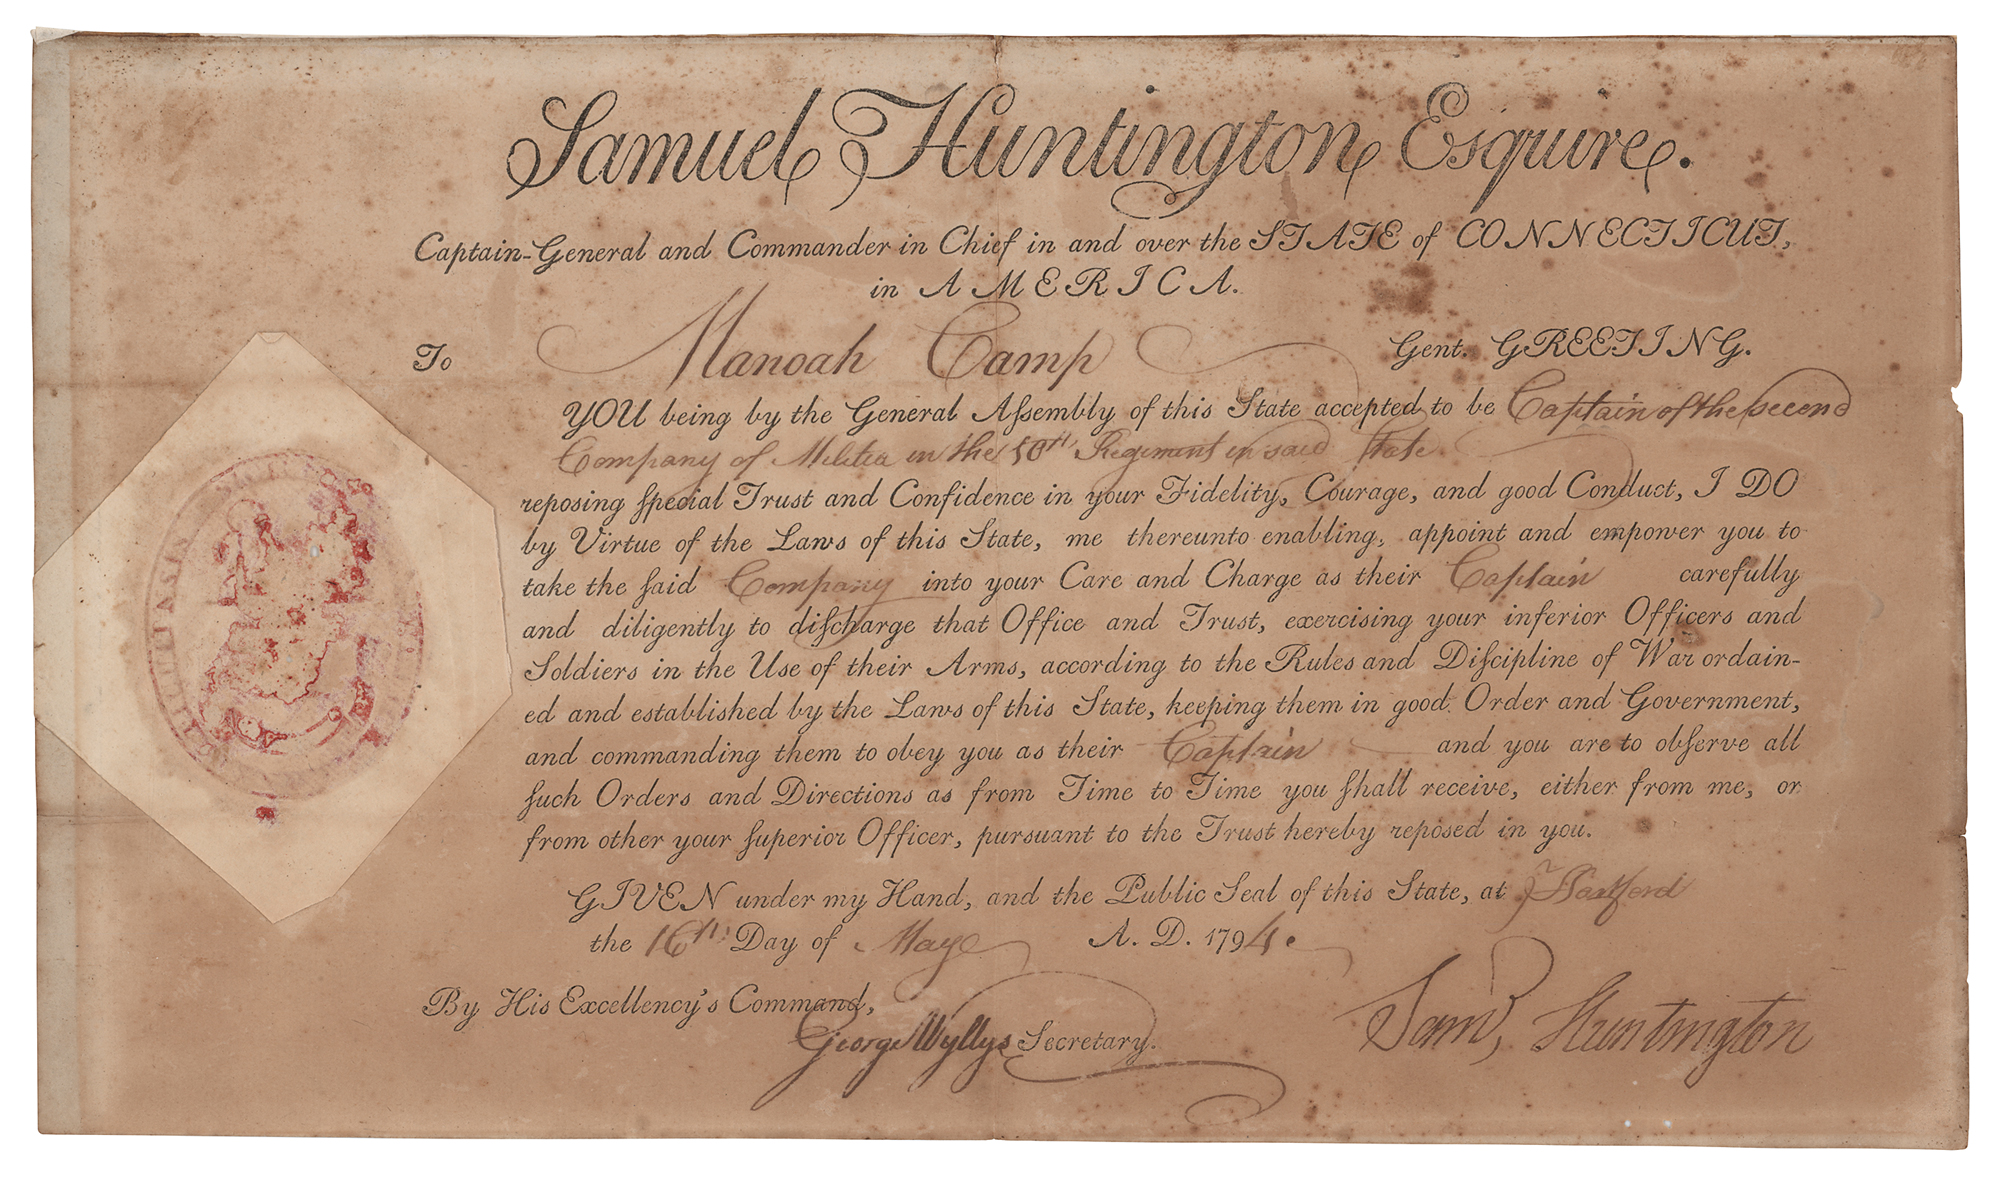 Samuel Huntington Esquire.
Captain-General and Commander in Chief in and over the STATE of CONNECTICUT,
in AMERICA.
To Manoah Camp Gent. GREETING.
YOU being by the General Aſsembly of this State accepted to be Captain of the second
Company of Militia in the 10th Regiment in said State
reposing ſpecial Trust and Confidence in your Fidelity, Courage, and good Conduct, I DO
by Virtue of the Laws of this State, me thereunto enabling, appoint and empower you to
take the ſaid Company into your Care and Charge as their Captain carefully
and diligently to diſcharge that Office and Trust, exercising your inferior Officers and
Soldiers in the Use of their Arms, according to the Rules and Diſcipline of War ordain-
ed and established by the Laws of this State, keeping them in good Order and Government,
and commanding them to obey you as their Captain and you are to obſerve all
ſuch Orders and Directions as from Time to Time you ſhall receive, either from me, or
from other your ſuperior Officer, pursuant to the Trust hereby reposed in you.
GIVEN under my Hand, and the Public Seal of this State, at Hartford
the 16th Day of May A. D. 1794.
By His Excellency's Command,
George Wyllys Secretary.
Saml Huntington